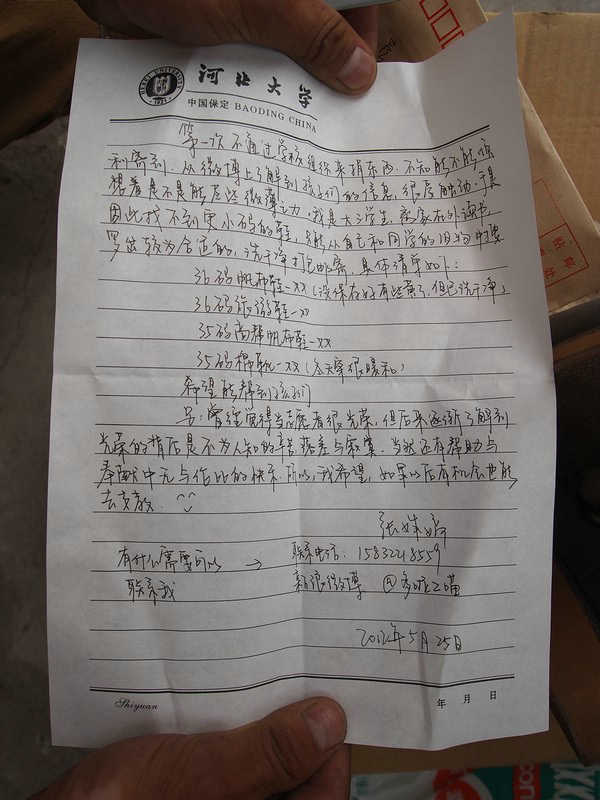 HEBEI UNIVERSITY
1921
河北大学
中国保定 BAODING CHINA
第一次不通过学校组织来捐东西.不知能不能顺
利寄到.从微博上了解到孩子们的信息,很感触动.于是
想着是不是能尽些微薄之力.我是大三学生,离家在外读书,
因此找不到更小码的鞋,只能从自己和同学的旧物中搜
罗出较为合适的,洗干净打包邮寄,具体清单如下:
36码帆布鞋一双(没保存好有些黄了,但已洗干净)
36码旅游鞋一双
35码高帮帆布鞋一双
35码棉靴一双(冬天穿很暖和)
希望能帮到孩子们
另:曾经觉得当志愿者很光荣,但后来逐渐了解到
光荣的背后是不为人知的辛苦与寂寞.当然还有帮助与
奉献中无与伦比的快乐.所以,我希望,如果以后有机会也能
去支教.
有什么需要可以 → 联系电话: 15832218559
联系我 新浪微博 @
2012年5月25日
Shiyuan 年 月 日